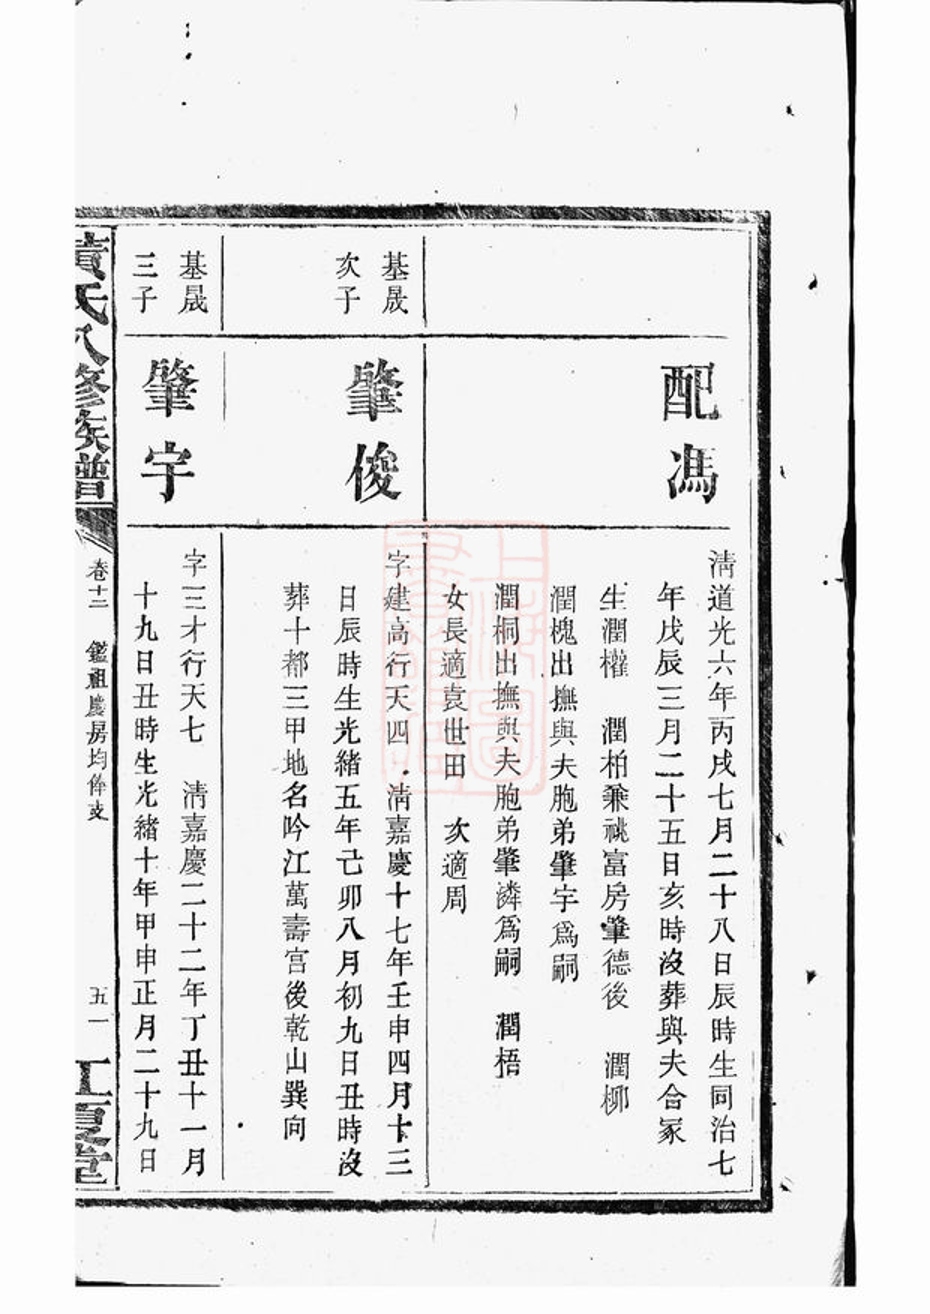 配馮
清道光六年丙戌七月二十八日辰時生同治七
年戊辰三月二十五日亥時沒葬與夫合冢
生潤權　潤柏兼祧富房肇德後　潤柳
潤槐出撫與夫胞弟肇宇爲嗣
潤桐出撫與夫胞弟肇憐爲嗣　潤梧
女長適袁世田　次適周
基晟
次子
肇俊
字建高行天四　清嘉慶十七年壬申四月十三
日辰時生光緒五年己卯八月初九日丑時沒
葬十都三甲地名吟江萬壽宮後乾山巽向
基晟
三子
肇宇
字三才行天七　清嘉慶二十二年丁丑十一月
十九日丑時生光緒十年甲申正月二十九日
黃氏八修族譜
卷十二　鑑祖慶房均俸支
五一
江夏堂